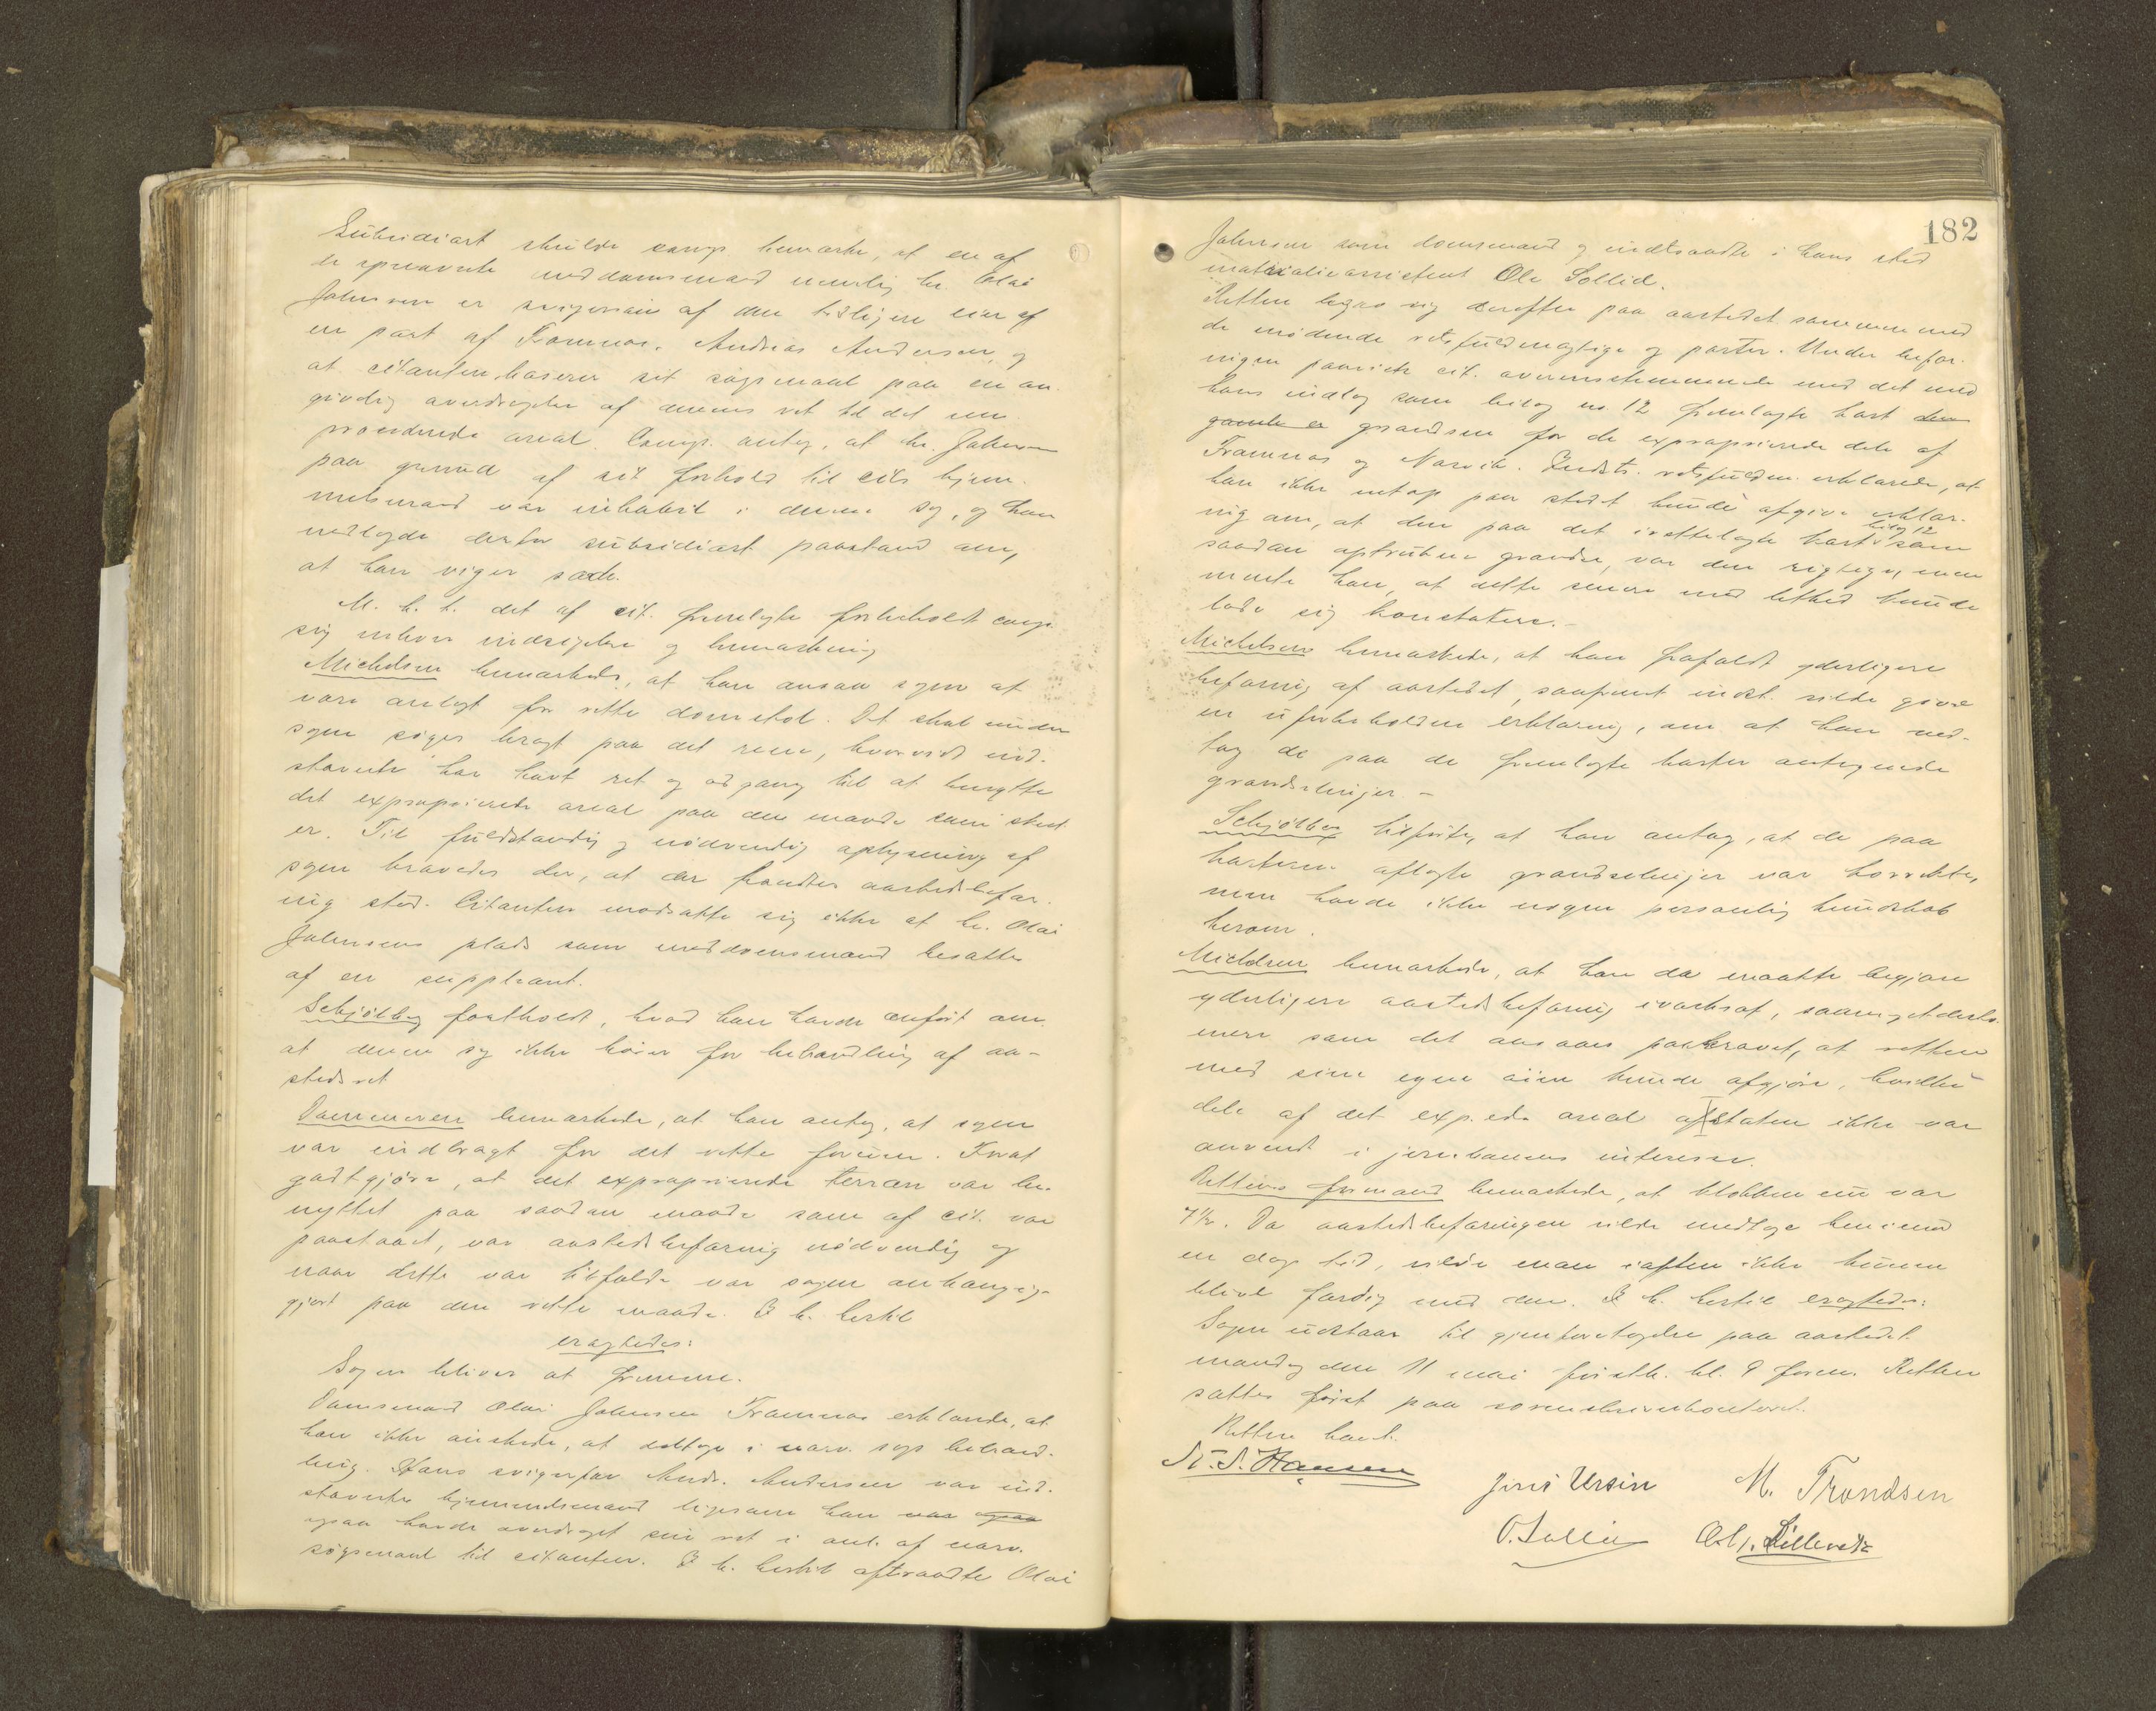 Subsidiært skulde comp. bemærke, at en af
de opnævnte meddomsmænd nemlig hr. Olai
Johnsen er svigersøn af den tidligere eier af
en part af Framnæs, Andreas Andersen, og
at citanten baserer sit søgsmaal paa en an-
givelig overdragelse af dennes ret til det
procederede areal. Comp. antog, at hr. Johnsen
paa grund af sit forhold til cits hjem-
melsmand var inhabil i denne sag, og han
nedlagde derfor subsidiært paastand om,
at han viger sæde.
M. h. t. det af cit. fremlagte forbeholdt comp.
sig enhver indsigelse og bemærkning
Michelsen bemærkede, at han ansaa sagen at
være anlagt for rette domstol. Det skal under
sagen søges bragt paa det rene, hvorvidt ind-
stævnte har havt ret og adgang til at benytte
det exproprierede areal paa den maade som sked
er. Til fuldstændig og nødvendig oplysning af
sagen krævedes der, at der fandtes aastedsbefar-
ing sted. Citanten modsatte sig ikke at hr. Olai
Johnsens plads som meddomsmand besattes
af en suppleant.
Schjölberg fastholdt, hvad han havde anført om
at denne sag ikke hører for behandling af aa-
stedsret
Dommeren bemærkede, at han antog, at sagen
var indbragt for det rette forum. For at
godtgjøre, at det exproprierede terræn var be-
nyttet paa saadan maade som af cit. var
paastaaet, var aastedsbefaring nødvendig og
naar dette var tilfælde var sagen anhængig-
gjort paa den rette maade. I h. hertil
eragtedes:
Sagen bliver at fremme.
Domsmand Olai Johnsen Framnæs erklærede, at
han ikke ønskede, at deltage i nærv. sags behand-
ling. Hans svigerfar Andr. Andersen var ind-
stævntes hjemmelsmand ligesom han var ogsaa
ogsaa havde overdraget sin ret i anl. af nærv.
søgsmaal til citanten. I h. hertil aftraadte Olai
182
Johnsen som domsmand og indtraadte i hans sted
materialieassistent Ole Sollid.
Retten begav sig derefter paa aastedet sammen med
de mødende retsfuldmægtige og parter. Under befar-
ingen paaviste cit. overensstemmende med det med
hans indlæg som bilag no. 12 fremlagte kart den
gamle er grændsen for de exproprierede dele af
Framnæs og Narvik. Indsts. retsfuldm. erklærede, at
han ikke netop paa stedet kunde afgive erklær-
ing om, at den paa det irettelagte kart bilag 12 som
saadan optrukne grændse, var den rigtige, men
mente han, at dette senere med lethed kunde
lade sig konstatere.-
Michelsen bemærkede, at han frafaldt yderligere
befaring af aastedet, saafremt indst. vilde give
en uforbeholden erklæring, om at han ved-
tog de paa de fremlagte karter antegnede
grændselinjer. -
Schjölberg tilføiede, at han antog, at de paa
kartene aflagte grændselinjer var korrekte,
men havde ikke nogen personlig kundskab
herom.
Michelsen bemærkede, at han da maatte begjære
yderligere aastedsbefaring iværksat, saameget desto
mere som det ansaaes paakrævet, at retten
med sine egne øine kunde afgjøre, hvilke
dele af det exp.ede areal af staten ikke var
anvendt i jernbanens interesse.
Rettens formand bemærkede, at klokken nu var
7½. Da aastedsbefaringen vilde medtage henimod
en dags tid, vilde man iaften ikke kunne
blive færdig med den. I h. hertil eragtedes:
Sagen udstaar til gjenforetagelse paa aastedet
mandag den 11 mai førstk. kl. 9 form. Retten
sættes først paa sorenskriverkontoret.
Retten hævet.
Jens Ursin M. Trondsen
O. Sollid